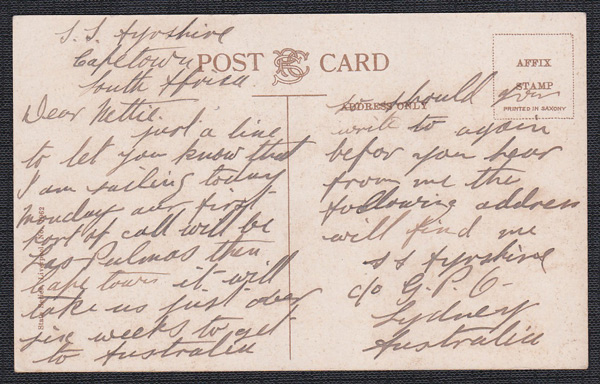 S.S. Ayrshire
Capetown
South Africa
POST CARD
AFFIX
STAMP
PRINTED IN SAXONY
ADDRESS ONLY
Dear Nettie.
just a line
to let you know that
I am sailing today
Monday our first
port of call will be
Las Palmas then
Cape town it will
take us just over
six weeks to get
to Australia
should you
write to again
befor you hear
from me the
following address
will find me
S S Ayrshire
c/o G.P.O.
Sydney
Australia